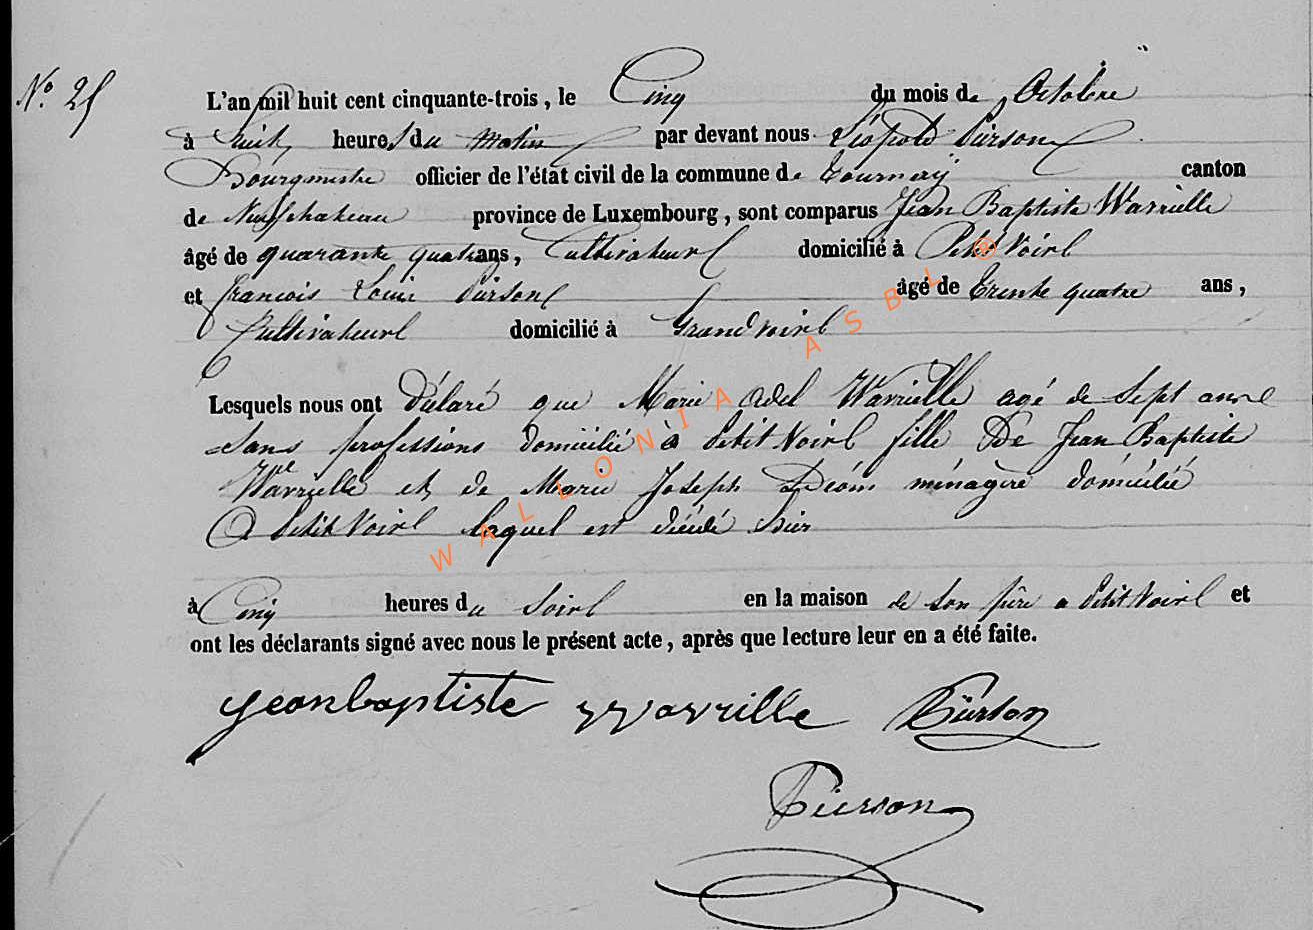 N° 25
L'an mil huit cent cinquante-trois, le Cinq du mois de Octobre
à huit heures du matin par devant nous Léopold Pierson
Bourgmestre officier de l'état civil de la commune de Tournaÿ canton
de Neufchateau province de Luxembourg, sont comparus Jean Baptiste Wavrielle
âgé de quarante quatre ans, Cultivateur domicilié à Petit Voir
et françois Louis Pierson âgé de Trente quatre ans,
Cultivateur domicilié à Grandvoir
Lesquels nous ont Déclaré que Marie Adel Wavrielle agé de Sept ans
sans professions domicilié à Petit Voir fille De Jean Baptiste
Wavrielle et de Marie Joseph Déom ménagère domicilié
a Petit Voir laquel est décédé hier
à Cinq heures du Soir en la maison de son père a Petit Voir et
ont les déclarants signé avec nous le présent acte, après que lecture leur en a été faite.
jeanbaptiste wavrille Pierson
Pierson
WALLONIA ASBL ®